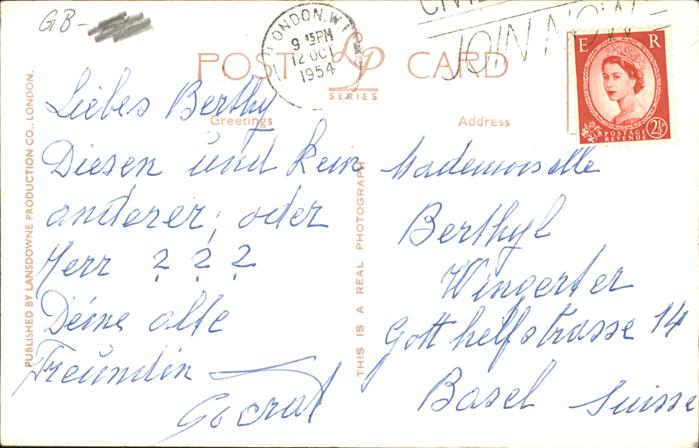 GB-
LONDON. W.1
9 45 PM
12 OCT
1954
CIVIL
JOIN NOW
POST Lp CARD
SERIES
Greetings
Address
E R
POSTAGE
REVENUE
2½
PUBLISHED BY LANSDOWNE PRODUCTION CO., LONDON.
THIS IS A REAL PHOTOGRAPH
Liebes Berthy
Diesen und kein
anderer, oder
Herr ? ? ?
Deine alte
Freundin
Mademoiselle
Berthyl
Wingerter
Gotthelfstrasse 14
Basel Suisse